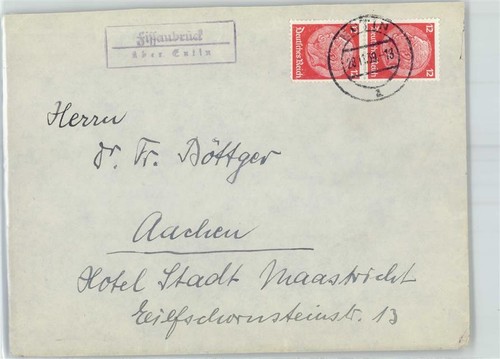 Fissaubrück
über Eutin
12 Deutsches Reich
12 Deutsches Reich
EUTIN
a
Herrn
Dr. Fr. Böttger
Aachen
Hotel Stadt Maastricht
Eilfschornsteinstr. 13